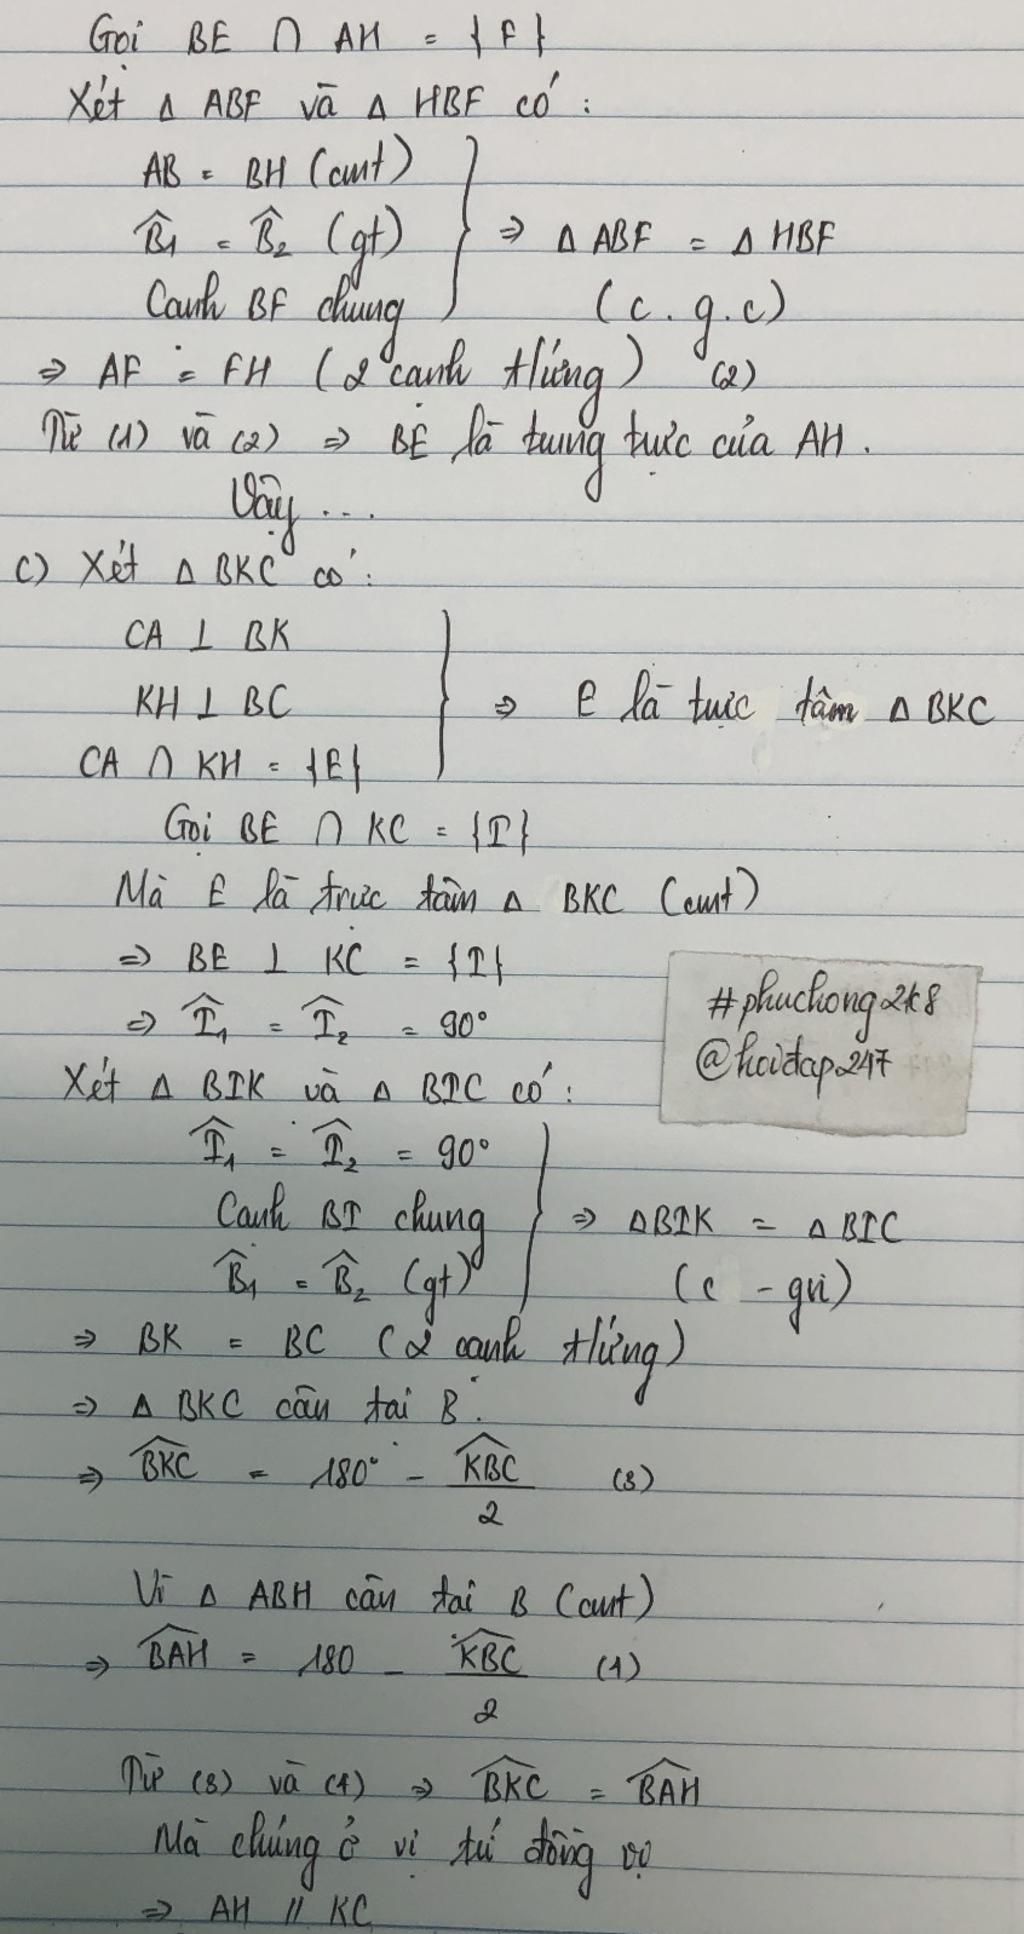 Gọi BE ∩ AH = {F}
Xét Δ ABF và Δ HBF có :
AB = BH (cmt)
B̂1 = B̂2 (gt) ⇒ Δ ABF = Δ HBF
Cạnh BF chung (c.g.c)
⇒ AF = FH (2 cạnh tứng) (2)
Từ (1) và (2) ⇒ BE là trung trực của AH.
Vậy ...
c) Xét Δ BKC có :
CA ⊥ BK
KH ⊥ BC ⇒ E là trực tâm Δ BKC
CA ∩ KH = {E}
Gọi BE ∩ KC = {I}
Mà E là trực tâm Δ BKC (cmt)
⇒ BE ⊥ KC = {I}
#phuchong2k8
⇒ Î1 = Î2 = 90°
@hoidap247
Xét Δ BIK và Δ BIC có :
Î1 = Î2 = 90°
Cạnh BI chung ⇒ ΔBIK = Δ BIC
B̂1 = B̂2 (gt) (c - gn)
⇒ BK = BC (2 cạnh tứng)
⇒ Δ BKC cân tại B.
⇒ B͡KC = 180° - K͡BC (3)
2
Vì Δ ABH cân tại B (cmt)
⇒ B͡AH = 180 - K͡BC (4)
2
Từ (3) và (4) ⇒ B͡KC = B͡AH
Mà chúng ở vị trí đồng vị
⇒ AH // KC